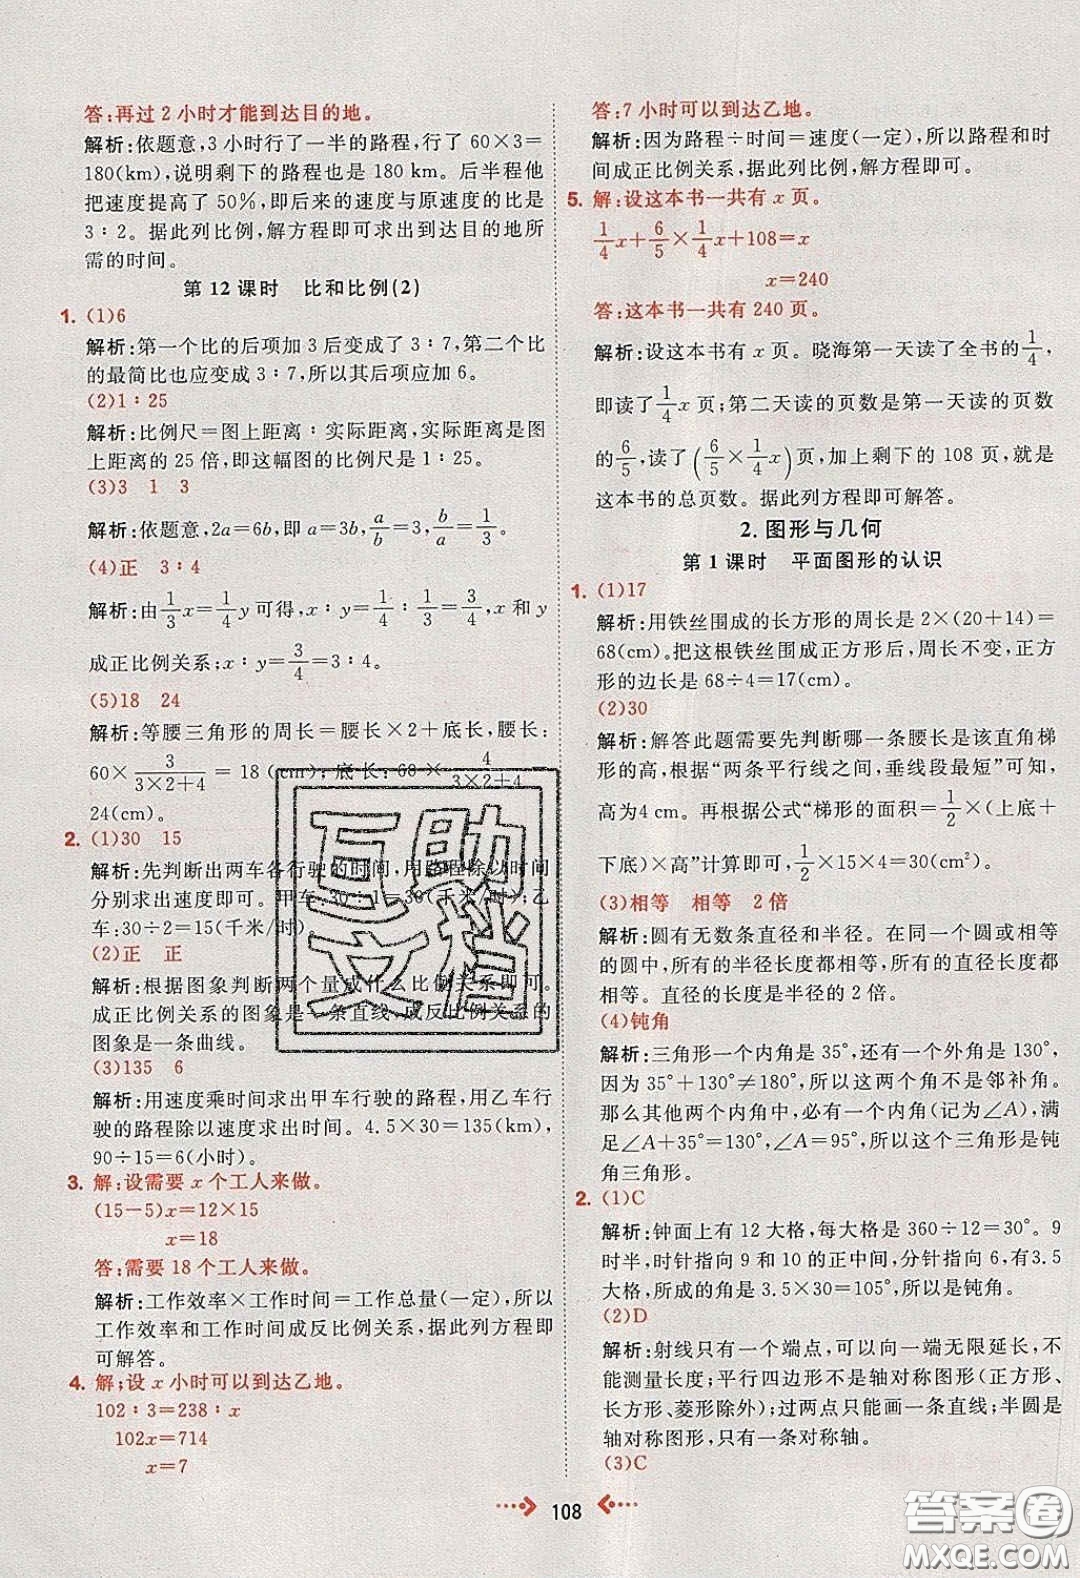 答:再过 2 小时才能到达目的地。
解析:依题意,3 小时行了一半的路程,行了 60×3=
180(km),说明剩下的路程也是 180 km。后半程他
把速度提高了 50%,即后来的速度与原速度的比是
3∶2。据此列比例,解方程即可求出到达目的地所
需的时间。
第 12 课时 比和比例(2)
1. (1)6
解析:第一个比的后项加 3 后变成了 3∶7,第二个比
的最简比也应变成 3∶7,所以其后项应加 6。
(2)1∶25
解析:比例尺=图上距离∶实际距离,实际距离是图
上距离的 25 倍,即这幅图的比例尺是 1∶25。
(3)3 1 3
解析:依题意,2a=6b,即 a=3b,a/b=3,b/a=1/3。
(4)正 3∶4
解析:由 1/3x=1/4y 可得,x/y=1/4∶1/3=3/4,x 和 y
成正比例关系;x∶y=3/4=3∶4。
(5)18 24
解析:等腰三角形的周长=腰长×2+底长,腰长:
60×3/(3×2+4)=18(cm);底长:68×4/(3×2+4)
24(cm)。
2. (1)30 15
解析:先判断出两车各行驶的时间,用路程除以时间
分别求出速度即可。甲车:30÷1=30(千米/时);乙
车:30÷2=15(千米/时)。
(2)正 正
解析:根据图象判断两个量成什么比例关系即可。
成正比例关系的图象是一条直线,成反比例关系的
图象是一条曲线。
(3)135 6
解析:用速度乘时间求出甲车行驶的路程,用乙车行
驶的路程除以速度求出时间。4.5×30=135(km),
90÷15=6(小时)。
3. 解:设需要 x 个工人来做。
(15-5)x=12×15
x=18
答:需要 18 个工人来做。
解析:工作效率×工作时间=工作总量(一定),所以
工作效率和工作时间成反比例关系,据此列方程即
可解答。
4. 解;设 x 小时可以到达乙地。
102∶3=238∶x
102x=714
x=7
答:7 小时可以到达乙地。
解析:因为路程÷时间=速度(一定),所以路程和时
间成正比例关系,据此列比例,解方程即可。
5. 解:设这本书一共有 x 页。
1/4x+6/5×1/4x+108=x
x=240
答:这本书一共有 240 页。
解析:设这本书有 x 页。晓海第一天读了全书的1/4,
即读了1/4x 页;第二天读的页数是第一天读的页数
的6/5,读了(6/5×1/4x)页,加上剩下的 108 页,就是
这本书的总页数。据此列方程即可解答。
2. 图形与几何
第 1 课时 平面图形的认识
1. (1)17
解析:用铁丝围成的长方形的周长是 2×(20+14)=
68(cm)。把这根铁丝围成正方形后,周长不变,正方
形的边长是 68÷4=17(cm)。
(2)30
解析:解答此题需要先判断哪一条腰长是该直角梯
形的高,根据“两条平行线之间,垂线段最短”可知,
高为4 cm。再根据公式“梯形的面积=1/2×(上底+
下底)×高”计算即可,1/2×15×4=30(cm²)。
(3)相等 相等 2 倍
解析:圆有无数条直径和半径。在同一个圆或相等
的圆中,所有的半径长度都相等,所有的直径长度都
相等。直径的长度是半径的 2 倍。
(4)钝角
解析:三角形一个内角是 35°,还有一个外角是 130°,
因为 35°+130°≠180°,所以这两个角不是邻补角。
那么其他两个内角中,必有一个内角(记为∠A),满
足∠A+35°=130°,∠A=95°,所以这个三角形是钝
角三角形。
2. (1)C
解析:钟面上有 12 大格,每大格是 360÷12=30°。9
时半,时针指向 9 和 10 的正中间,分针指向 6,有3.5
大格,所成的角是 3.5×30=105°,所以是钝角。
(2)D
解析:射线只有一个端点,可以向一端无限延长,不
能测量长度;平行四边形不是轴对称图形(正方形、
长方形、菱形除外);过两点只能画一条直线;半圆是
轴对称图形,只有一条对称轴。
(3)C
108
互助
文档
答案圈
MXQE.COM